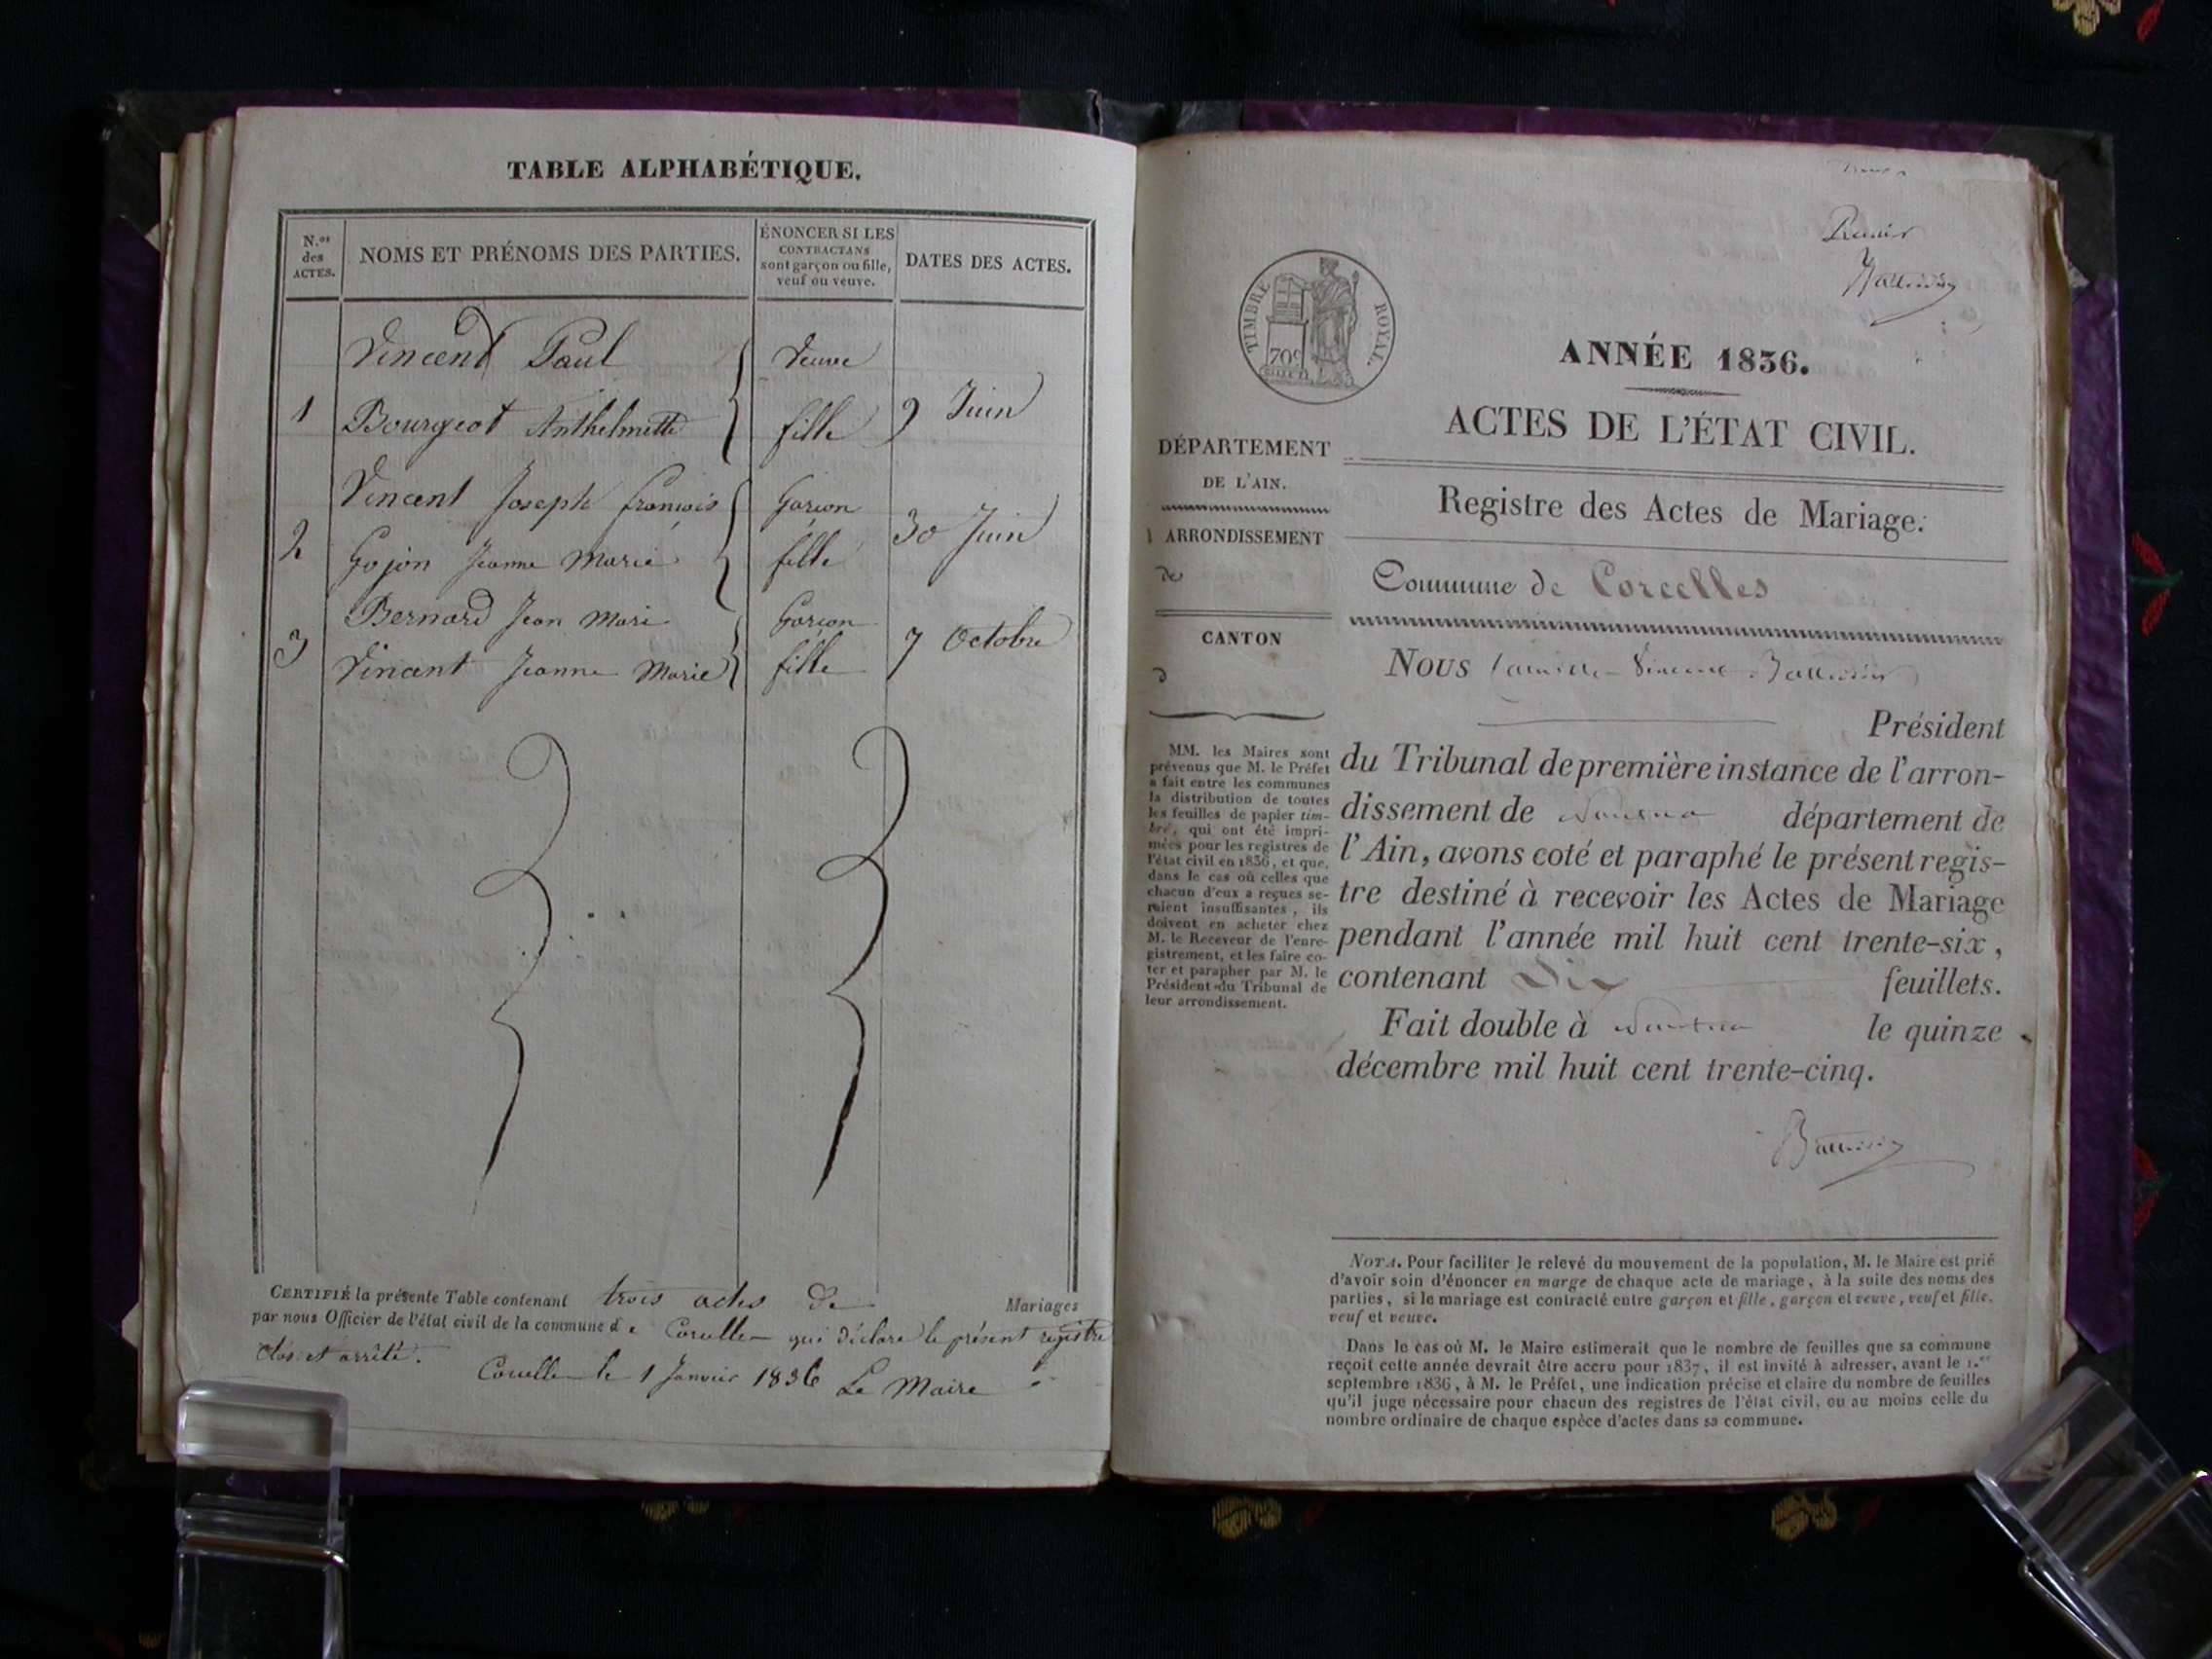 TABLE ALPHABÉTIQUE.
N.os des ACTES.
NOMS ET PRÉNOMS DES PARTIES.
ÉNONCER SI LES CONTRACTANS sont garçon ou fille, veuf ou veuve.
DATES DES ACTES.
Vincent Paul
Veuve
1
Bourgeot Anthelmette
fille
9 Juin
Vincent Joseph françois
Garcon
2
30 Juin
Gojon Jeanne Marie
fille
Bernard Jean Marie
Garcon
3
7 Octobre
Vincent Jeanne Marie
fille
CERTIFIÉ la présente Table contenant trois actes de Mariages
par nous Officier de l'état civil de la commune de Corcelles qui déclare le présent registre
clos et arrêté.
Corcelles le 1 Janvier 1836 Le Maire
Premier
TIMBRE ROYAL.
70c
ANNÉE 1836.
ACTES DE L'ÉTAT CIVIL.
Registre des Actes de Mariage.
Commune de Corcelles
DÉPARTEMENT
DE L'AIN.
ARRONDISSEMENT
de
CANTON
d
MM. les Maires sont
prévenus que M. le Préfet
a fait entre les communes
la distribution de toutes
les feuilles de papier tim-
bré, qui ont été impri-
mées pour les registres de
l'état civil en 1836, et que,
dans le cas où celles que
chacun d'eux a reçues se-
raient insuffisantes, ils
doivent en acheter chez
M. le Receveur de l'enre-
gistrement, et les faire co-
ter et parapher par M. le
Président du Tribunal de
leur arrondissement.
NOUS
Président
du Tribunal de première instance de l'arron-
dissement de Nantua département de
l'Ain, avons coté et paraphé le présent regis-
tre destiné à recevoir les Actes de Mariage
pendant l'année mil huit cent trente-six,
contenant Dix feuillets.
Fait double à Nantua le quinze
décembre mil huit cent trente-cinq.
NOTA. Pour faciliter le relevé du mouvement de la population, M. le Maire est prié
d'avoir soin d'énoncer en marge de chaque acte de mariage, à la suite des noms des
parties, si le mariage est contracté entre garçon et fille, garçon et veuve, veuf et fille,
veuf et veuve.
Dans le cas où M. le Maire estimerait que le nombre de feuilles que sa commune
reçoit cette année devrait être accru pour 1837, il est invité à adresser, avant le 1.er
septembre 1836, à M. le Préfet, une indication précise et claire du nombre de feuilles
qu'il juge nécessaire pour chacun des registres de l'état civil, ou au moins celle du
nombre ordinaire de chaque espèce d'actes dans sa commune.